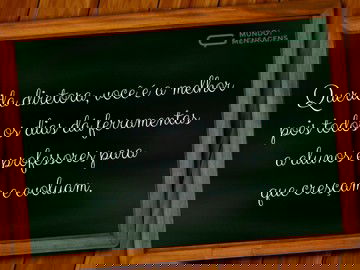 MUNDO DAS
MENSAGENS
Querida diretora, você é a melhor
pois todos os dias dá ferramentas
a alunos e professores para
que cresçam e evoluam.